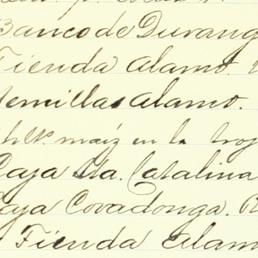 Banco de Durang
Tienda Alamo.
Semillas Alamo.
maíz en la troj
Caja Sta. Catalina
Caja Covadonga. R
Tienda Alam